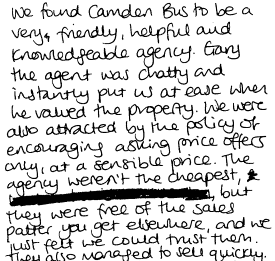 We found Camden Bus to be a
very, friendly, helpful and
knowledgeable agency. Gary
the agent was chatty and
instantly put us at ease when
he valued the property. We were
also attracted by the policy of
encouraging asking price offers
only, at a sensible price. The
agency weren't the cheapest,
but
they were free of the sales
patter you get elsewhere, and we
just felt we could trust them.
They also managed to sell quickly.